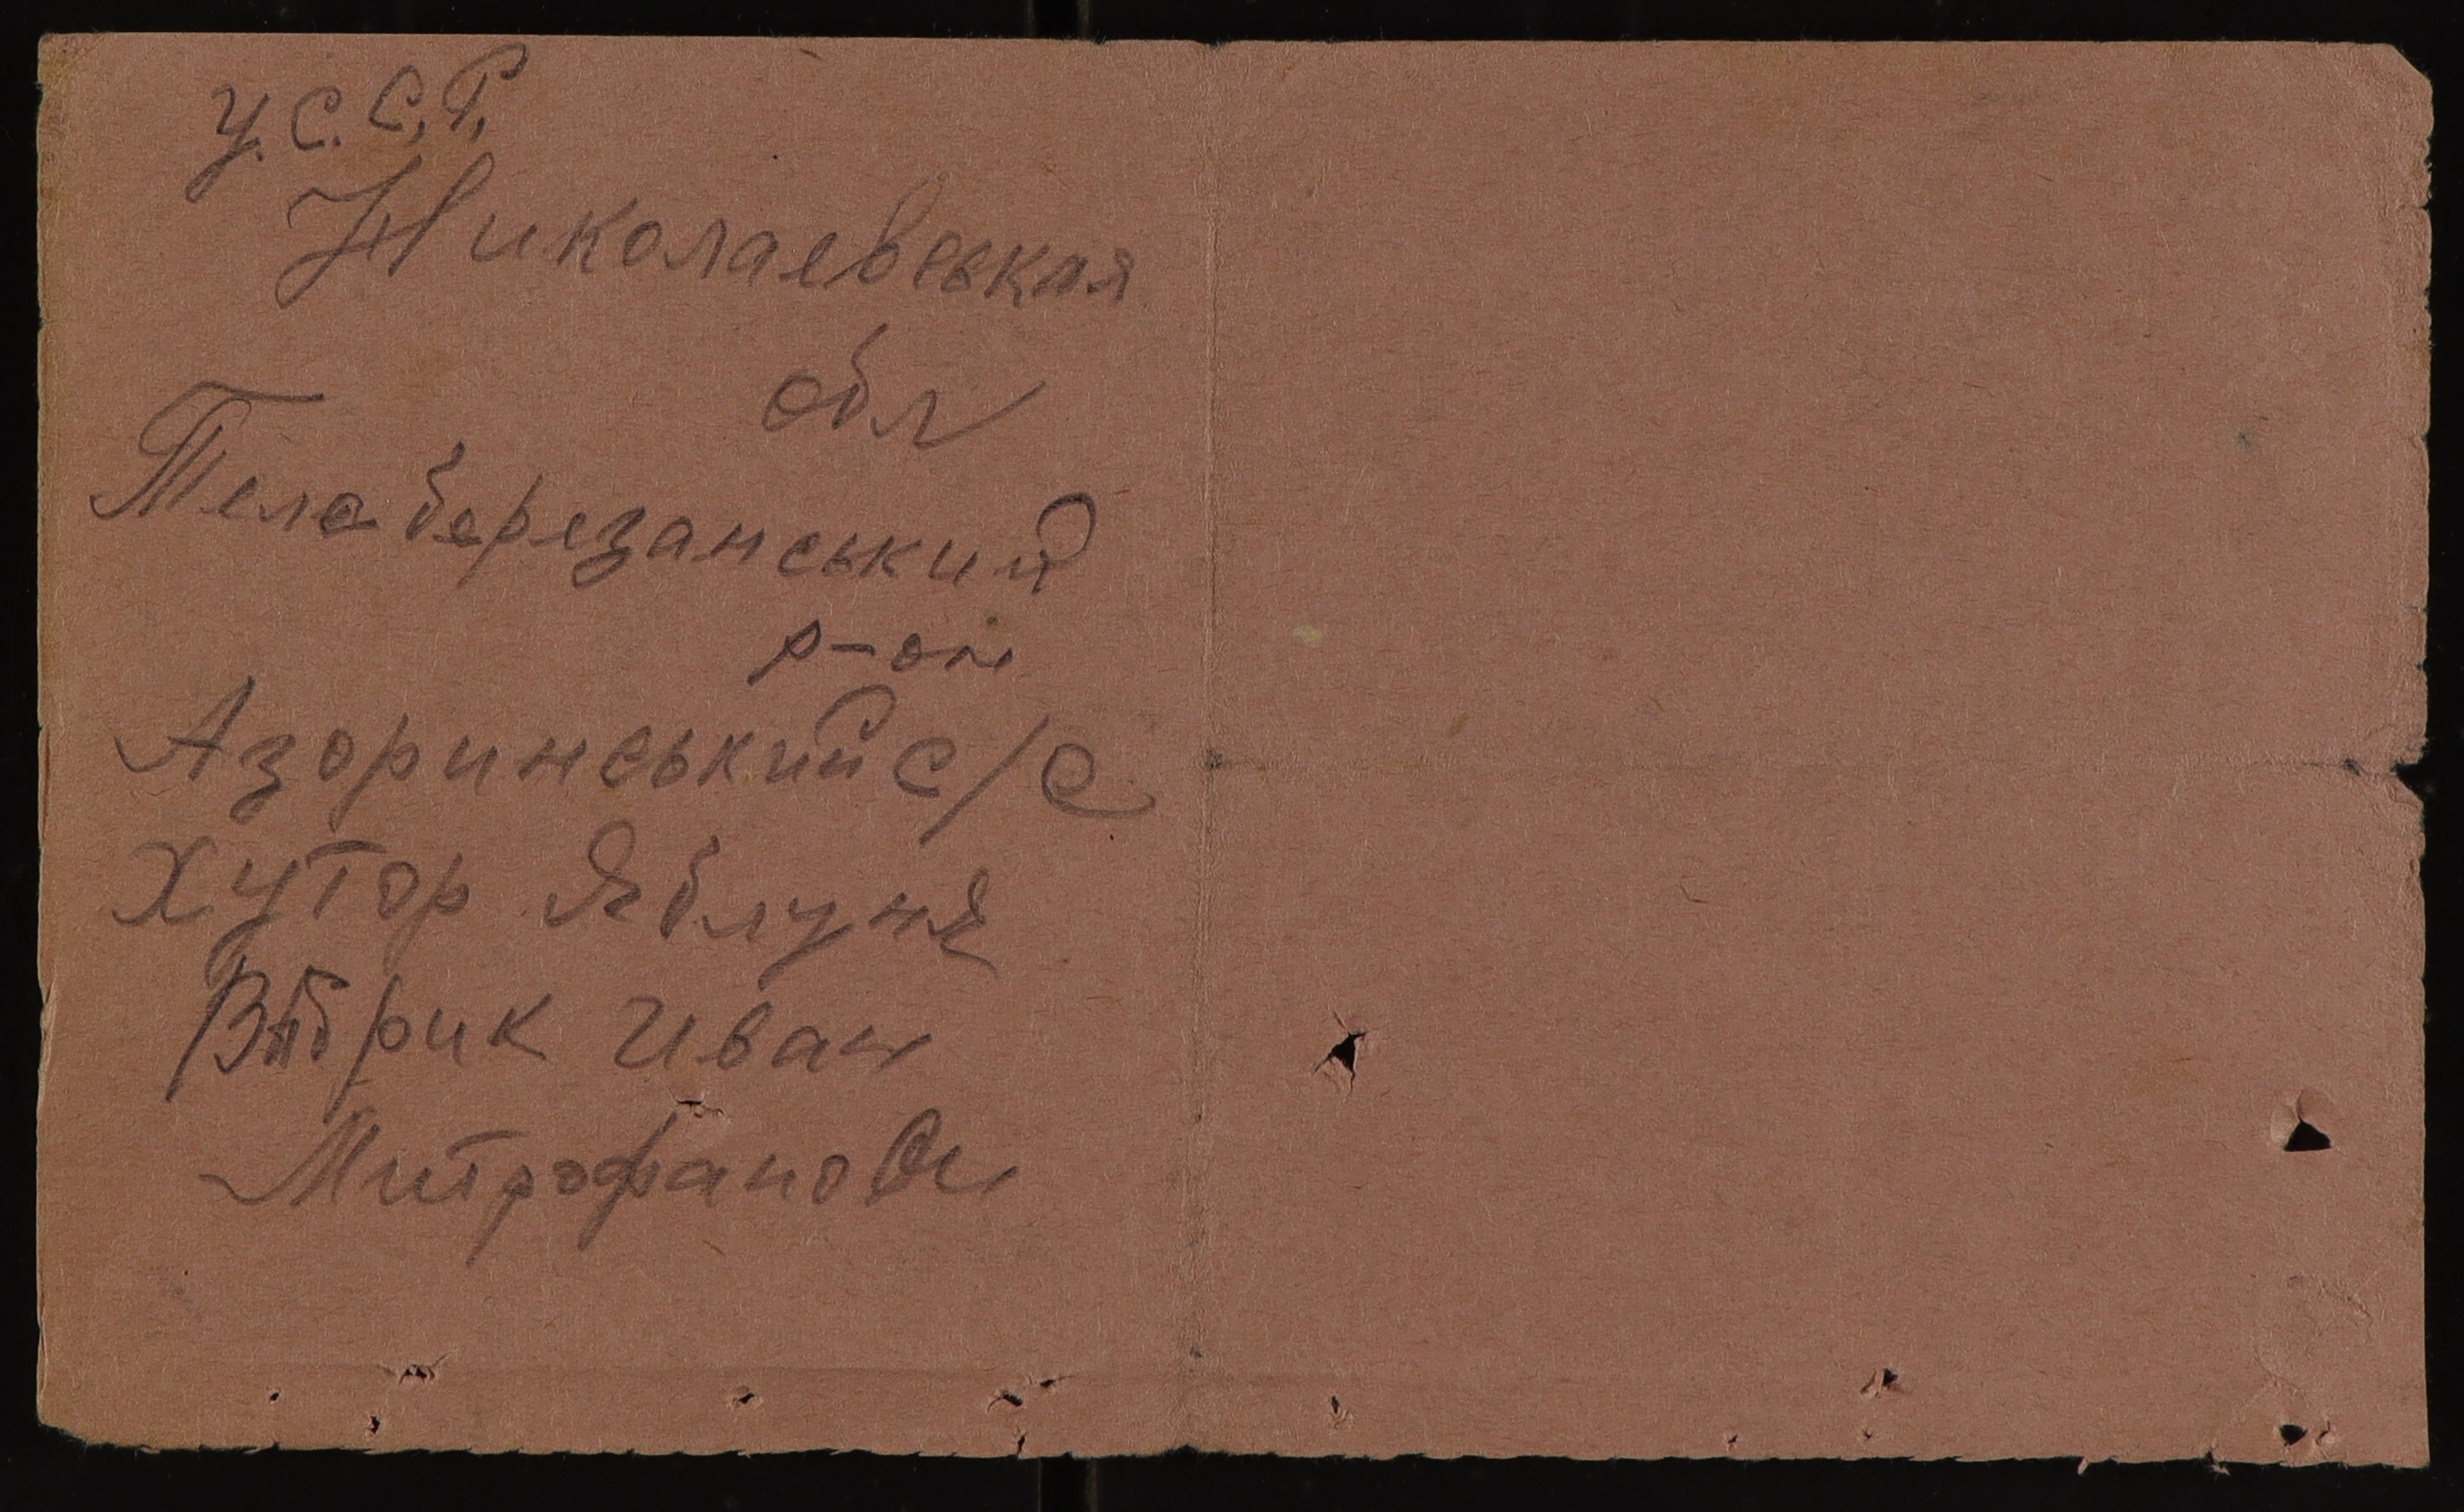 У.С.С.Р.
Николаевськая
обл
Телеберезанський
р-он
Азоринський с/с
Хутор Яблуня
Иван
Митрофанови